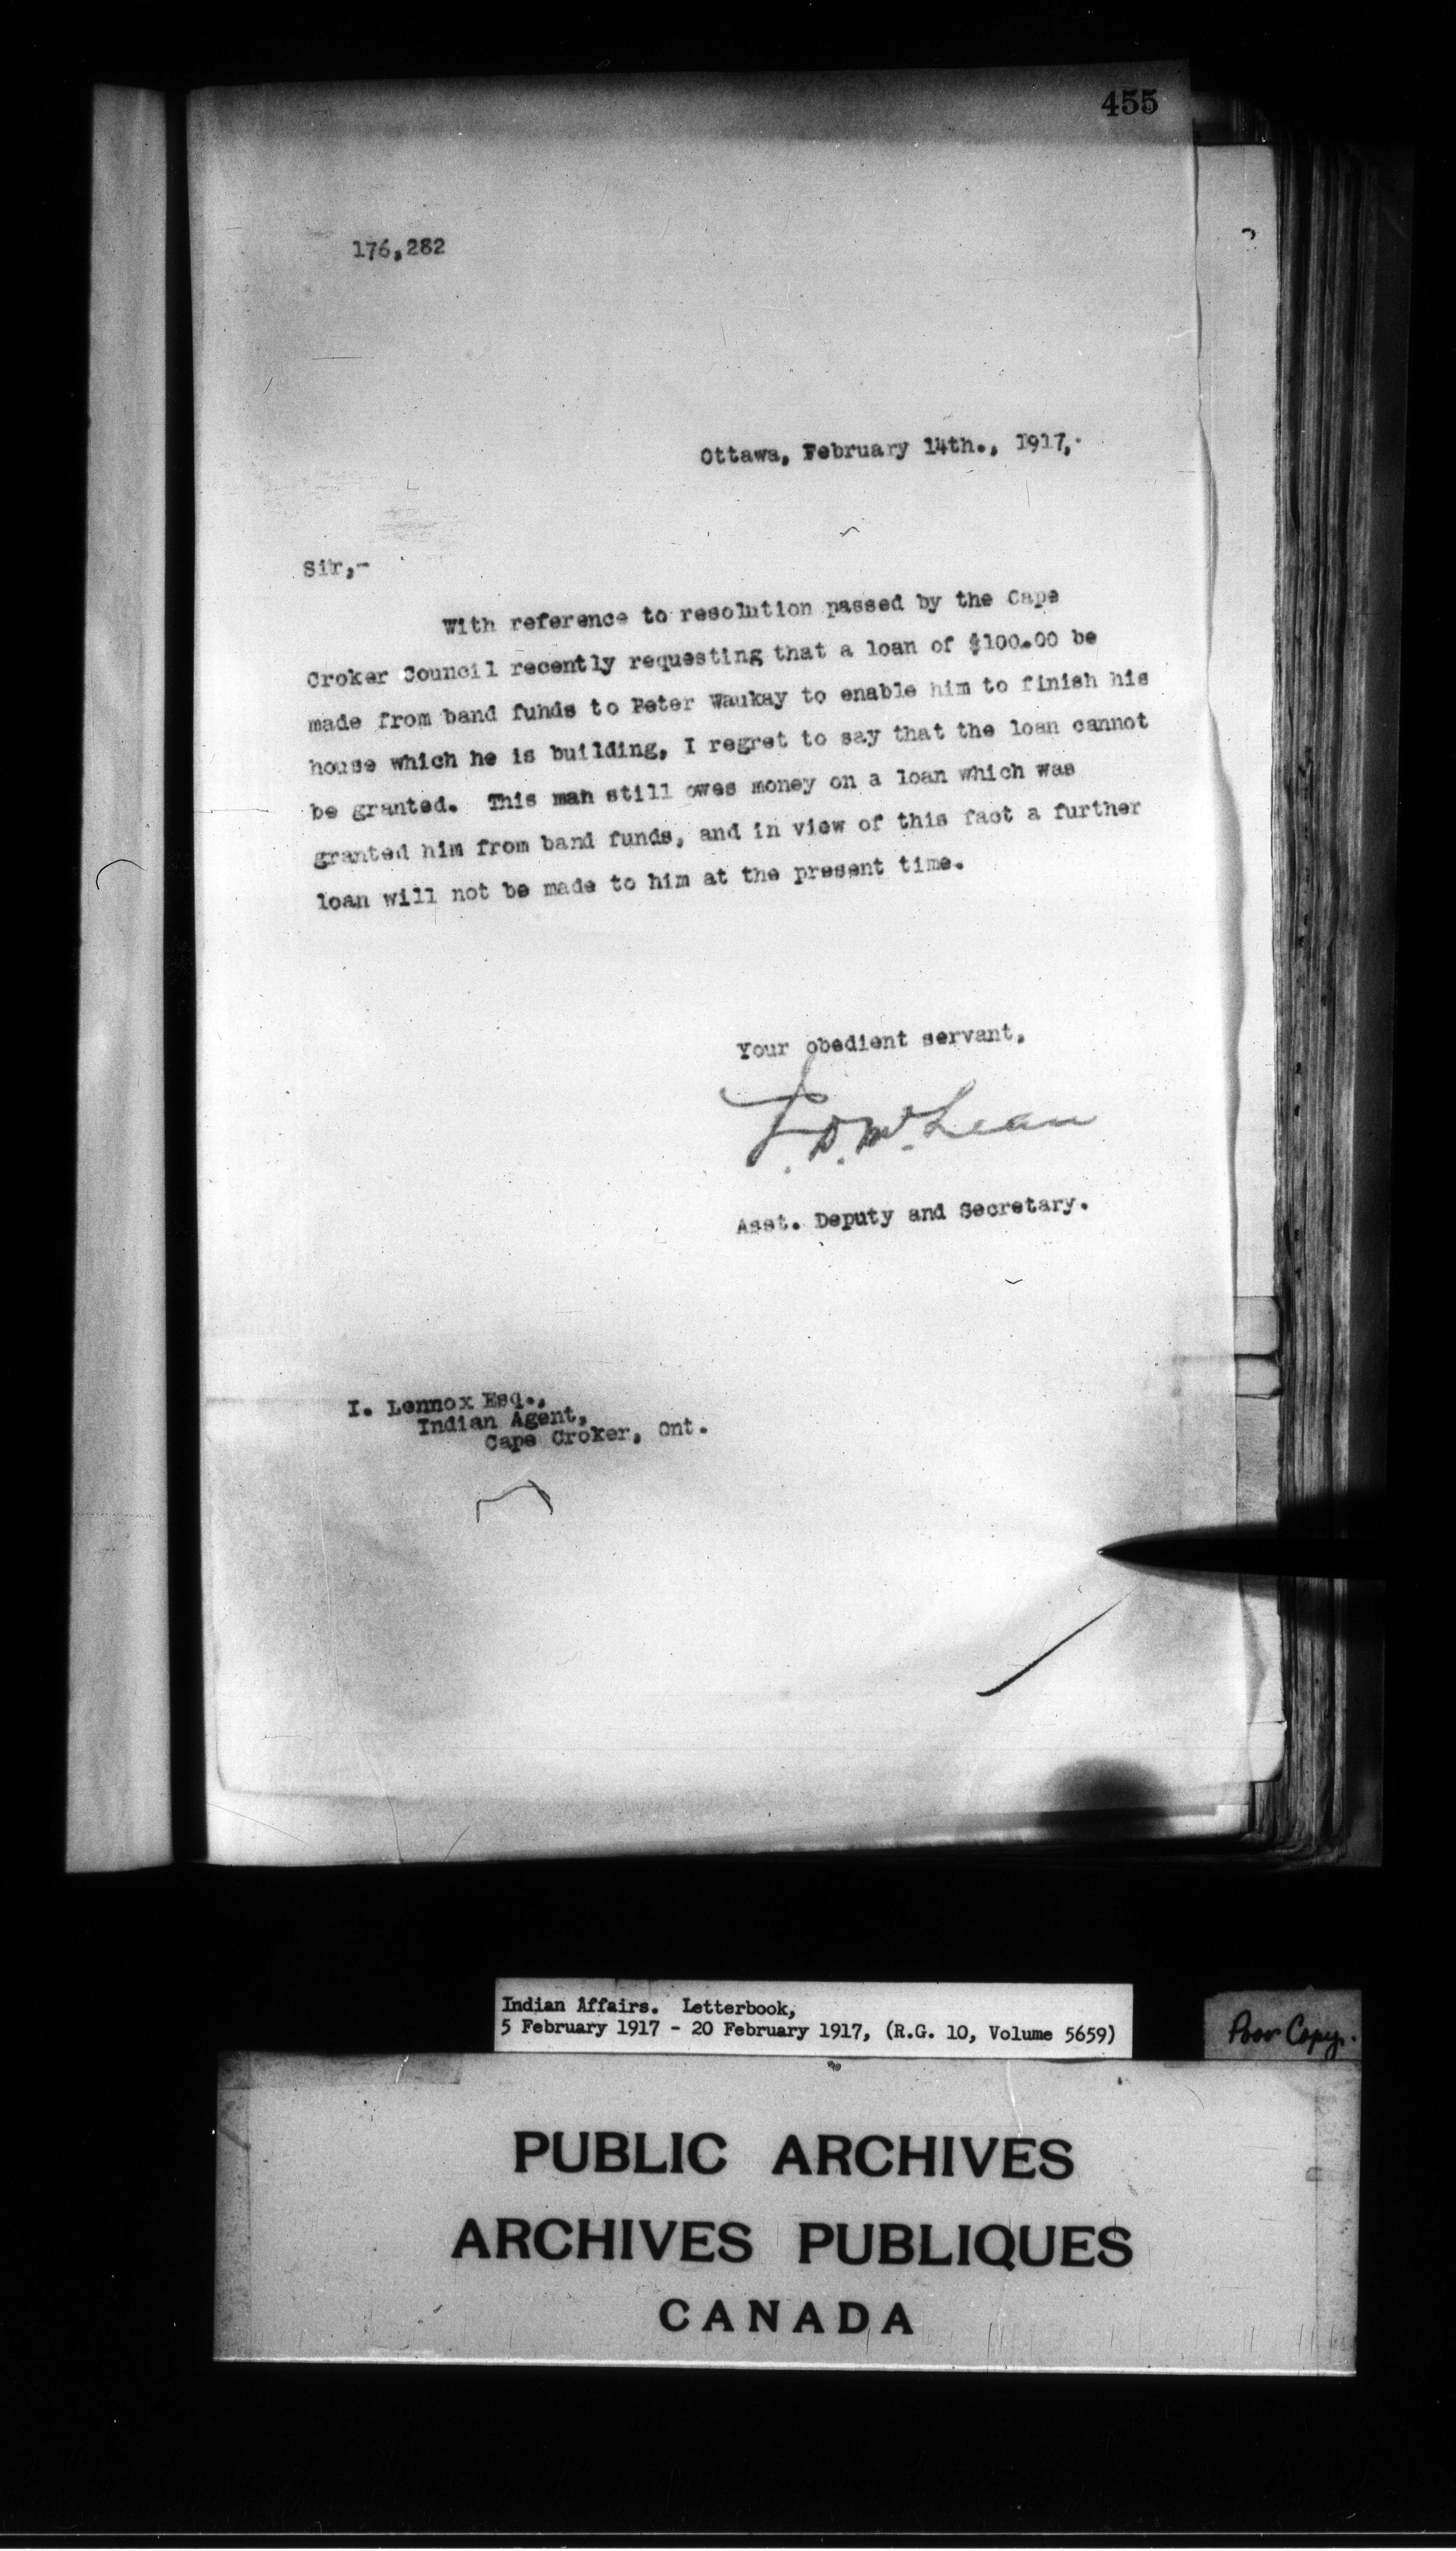 455
176,282
Ottawa, February 14th., 1917,
Sir,-
With reference to resolution passed by the Cape
Croker Council recently requesting that a loan of $100.00 be
made from band funds to Peter Waukay to enable him to finish his
house which he is building, I regret to say that the loan cannot
be granted. This man still owes money on a loan which was
granted him from band funds, and in view of this fact a further
loan will not be made to him at the present time.
Your obedient servant,
J. D. McLean
Asst. Deputy and Secretary.
I. Lennox Esq.,
Indian Agent,
Cape Croker, Ont.
Indian Affairs. Letterbook,
5 February 1917 - 20 February 1917, (R.G. 10, Volume 5659)
Poor Copy.
PUBLIC ARCHIVES
ARCHIVES PUBLIQUES
CANADA